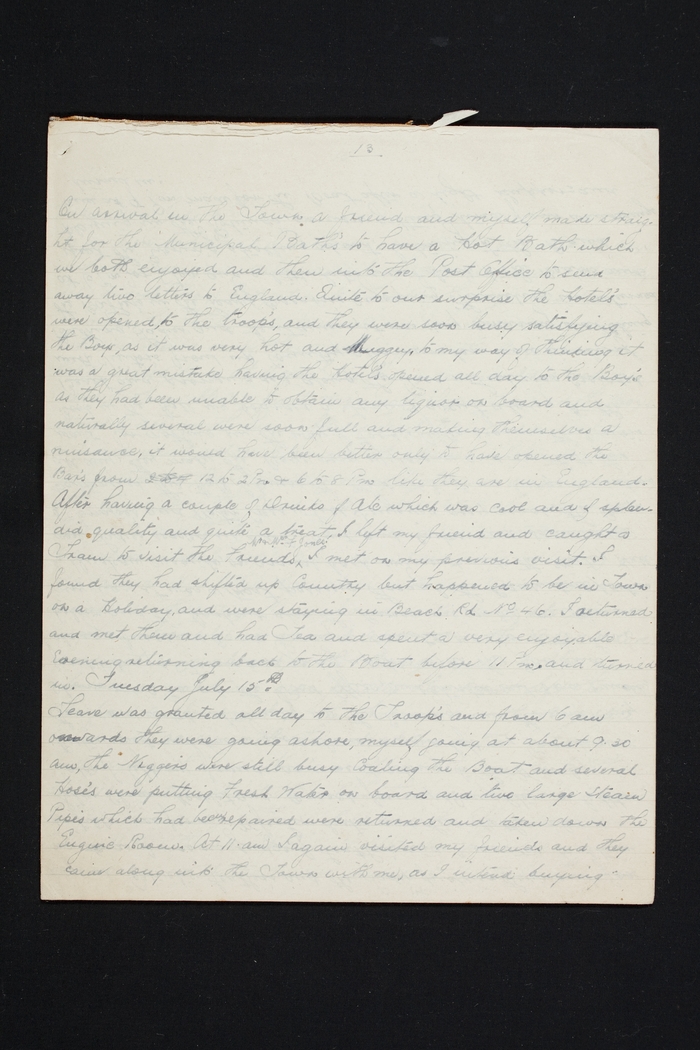 13.
On arrival in the Town a friend and myself made straig-
ht for the Municipal Bath's to have a hot Bath which
we both enjoyed and then into the Post Office to send
away two letters to England. Quite to our surprise the hotel's
were opened, to the troop's, and they were soon busy satisfying
the Boys, as it was very hot and Muggy, to my way of thinking it
was a great mistake having the hotels opened all day to the Boy's
as they had been unable to obtain any liquor on board and
naturally several were soon full and making themselves a
nuisance, it would have been better only to have opened the
Bar's from 12 to 2 Pm & 6 to 8 Pm like they are in England.
After having a couple of Drinks of Ale which was cool and of splen-
did quality and quite a treat, I left my friend and caught a
Tram to visit the Friends, I met on my previous visit. I
found they had shifted up Country but happened to be in Town
on a Holiday, and were staying in Beach Rd No 46. I returned
and met them and had Tea and spent a very enjoyable
Evening returning back to the Boat before 11 Pm and turned
in. Tuesday July 15th.
Leave was granted all day to the Troop's and from 6 am
onwards they were going ashore, myself going at about 9.30
am, the Niggers were still busy Coaling the Boat and several
Hose's were putting Fresh Water on board and two large Steam
Pipes which had been repaired were returned and taken down the
Engine Room. At 11 am I again visited my friends and they
came along into the Town with me, as I intend buying